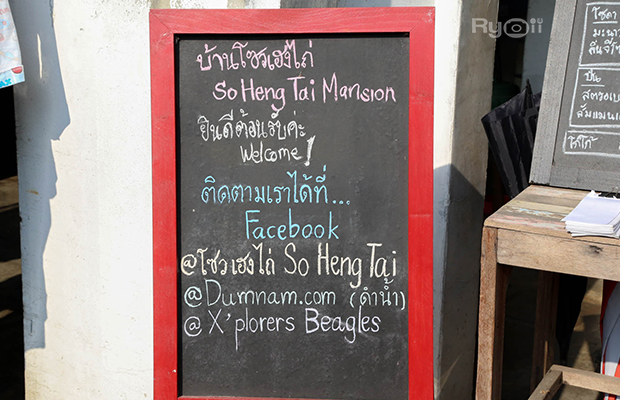 RyOii
บ้านโซวเฮงไถ่
So Heng Tai Mansion
ยินดีต้อนรับค่ะ
Welcome!
ติดตามเราได้ที่...
Facebook
@โซวเฮงไถ่ So Heng Tai
@Dumnam.com (ดำน้ำ)
@ X'plorers Beagles
โซดา
มะนา
ปั่น
โกโก้